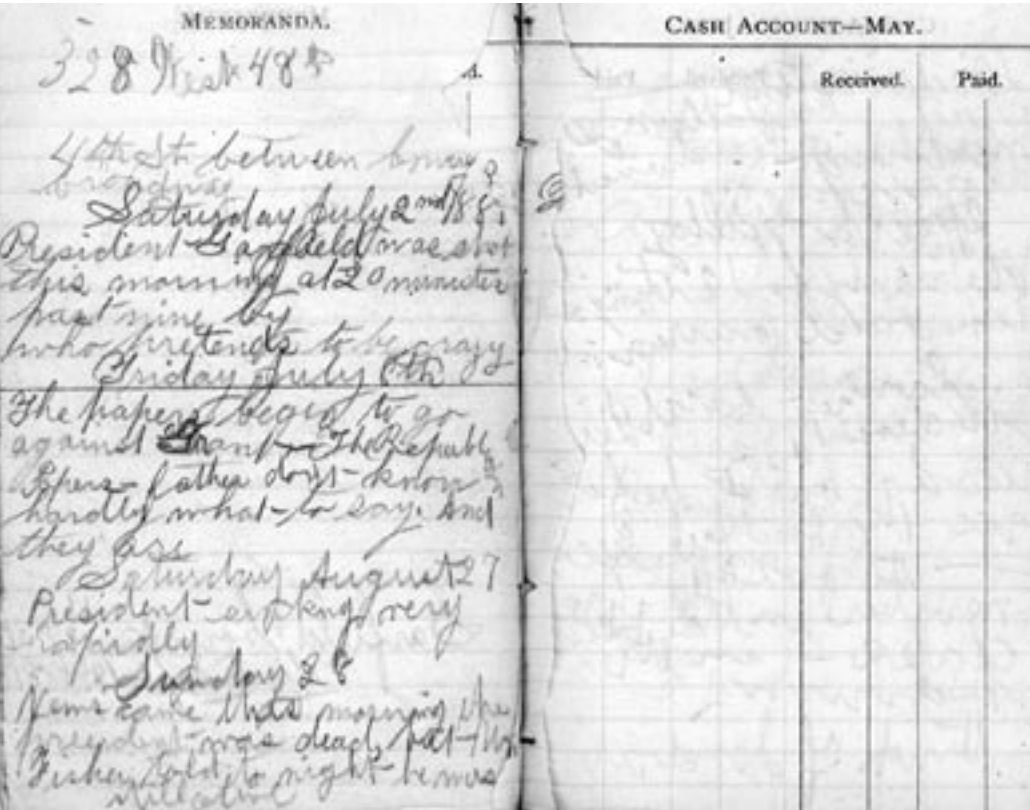 MEMORANDA.
328 West 48th
44th St between
broadway
Saturday July 2nd 1881
President Garfield was shot
this morning at 20 minutes
past nine by
who pretends to be crazy
Friday July 8th
The papers begin to go
against Grant – The Republ
papers – father don't know
hardly what to say. And
they are
Saturday August 27
President sinking very
rapidly
Sunday 28
News came this morning the
president was dead, but
Fisher told to night he was
still alive
CASH ACCOUNT—MAY.
Received. Paid.